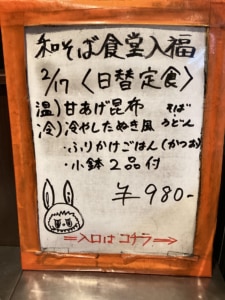 和そば食堂入福
2/17〈日替定食〉
温）甘あげ昆布 そば・
冷）冷やしたぬき風 うどん
・ふりかけごはん（かつお）
・小鉢２品付
¥980-
⇒入口はコチラ⇒